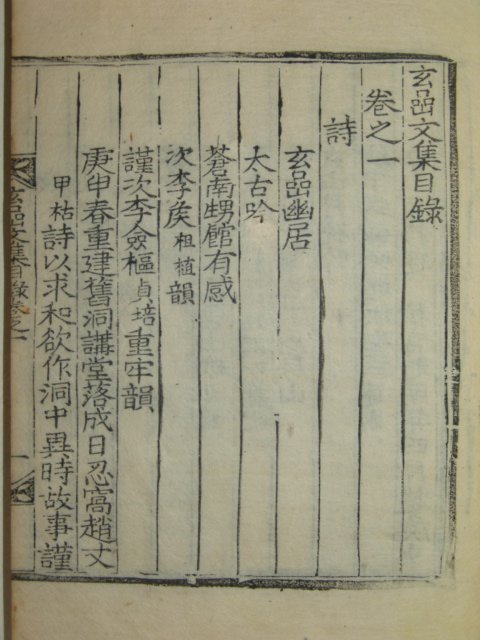 玄嵒文集目錄
卷之一
詩
玄嵒幽居
太古吟
蒼南甥館有感
次李矦粗植韻
謹次李僉樞貞培重牢韻
庚申春重建舊洞講堂落成日忍窩趙丈
甲祜詩以求和欲作洞中異時故事謹
玄嵒文集目錄卷之一 一